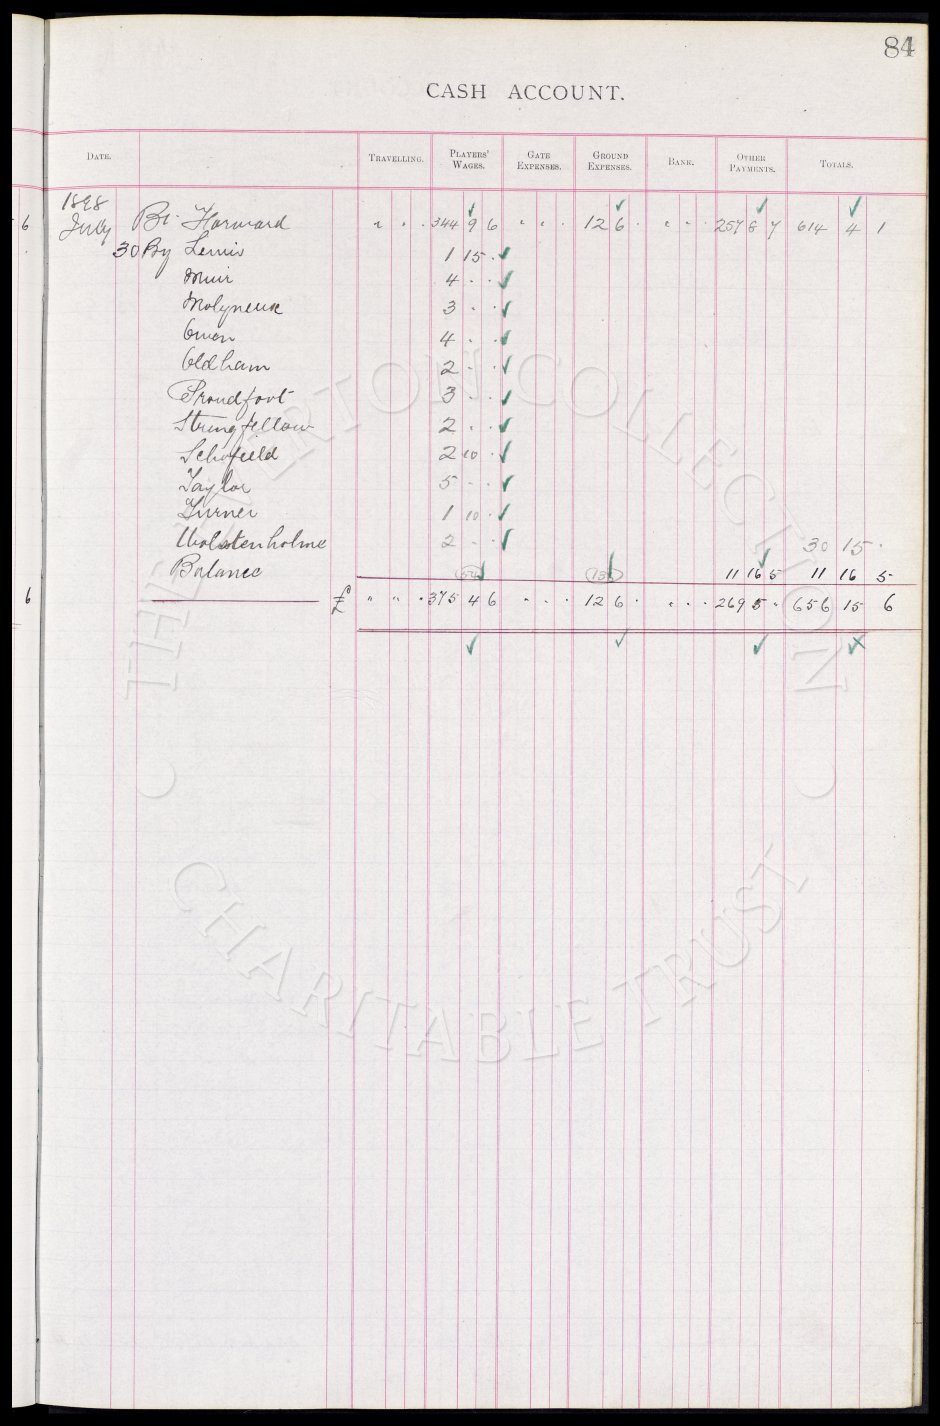 84
CASH ACCOUNT.
DATE. TRAVELLING. PLAYERS' WAGES. GATE EXPENSES. GROUND EXPENSES. BANK. OTHER PAYMENTS. TOTALS.
1898
6 July Bt. Forward " " . 344 9 6 " " . 12 6 . " " . 257 8 7 614 4 1
30 By Lewis 1 15 .
Muir 4 . .
Molyneux 3 . .
Owen 4 . .
Oldham 2 . .
Proudfoot 3 . .
Stringfellow 2 . .
Schofield 2 10 .
Taylor 5 . .
Turner 1 10 .
Wolstenholme 2 . . 30 15 .
Balance 11 16 5 11 16 5
6 £ " " . 375 4 6 " . . 12 6 . " . . 269 5 " 656 15 6
THE EVERTON COLLECTION
CHARITABLE TRUST